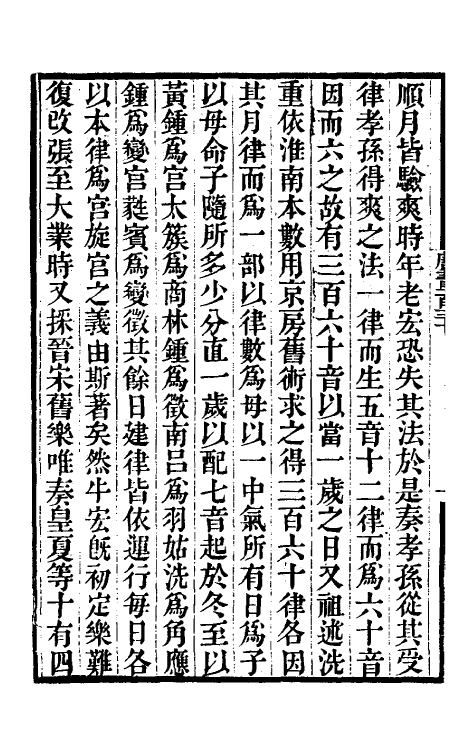 順月皆驗爽時年老宏恐失其法於是奏孝孫從其受
律孝孫得爽之法一律而生五音十二律而爲六十音
因而六之故有三百六十音以當一歲之日又祖述洗
重依淮南本數用京房舊術求之得三百六十律各因
其月律而爲一部以律數爲母以一中氣所有日爲子
以母命子隨所多少分直一歲以配七音起於冬至以
黃鍾爲宮太簇爲商林鍾爲徵南呂爲羽姑洗爲角應
鍾爲變宮蕤賓爲變徵其餘日建律皆依運行每日各
以本律爲宮旋宮之義由斯著矣然牛宏旣初定樂難
復改張至大業時又採晉宋舊樂唯奏皇夏等十有四